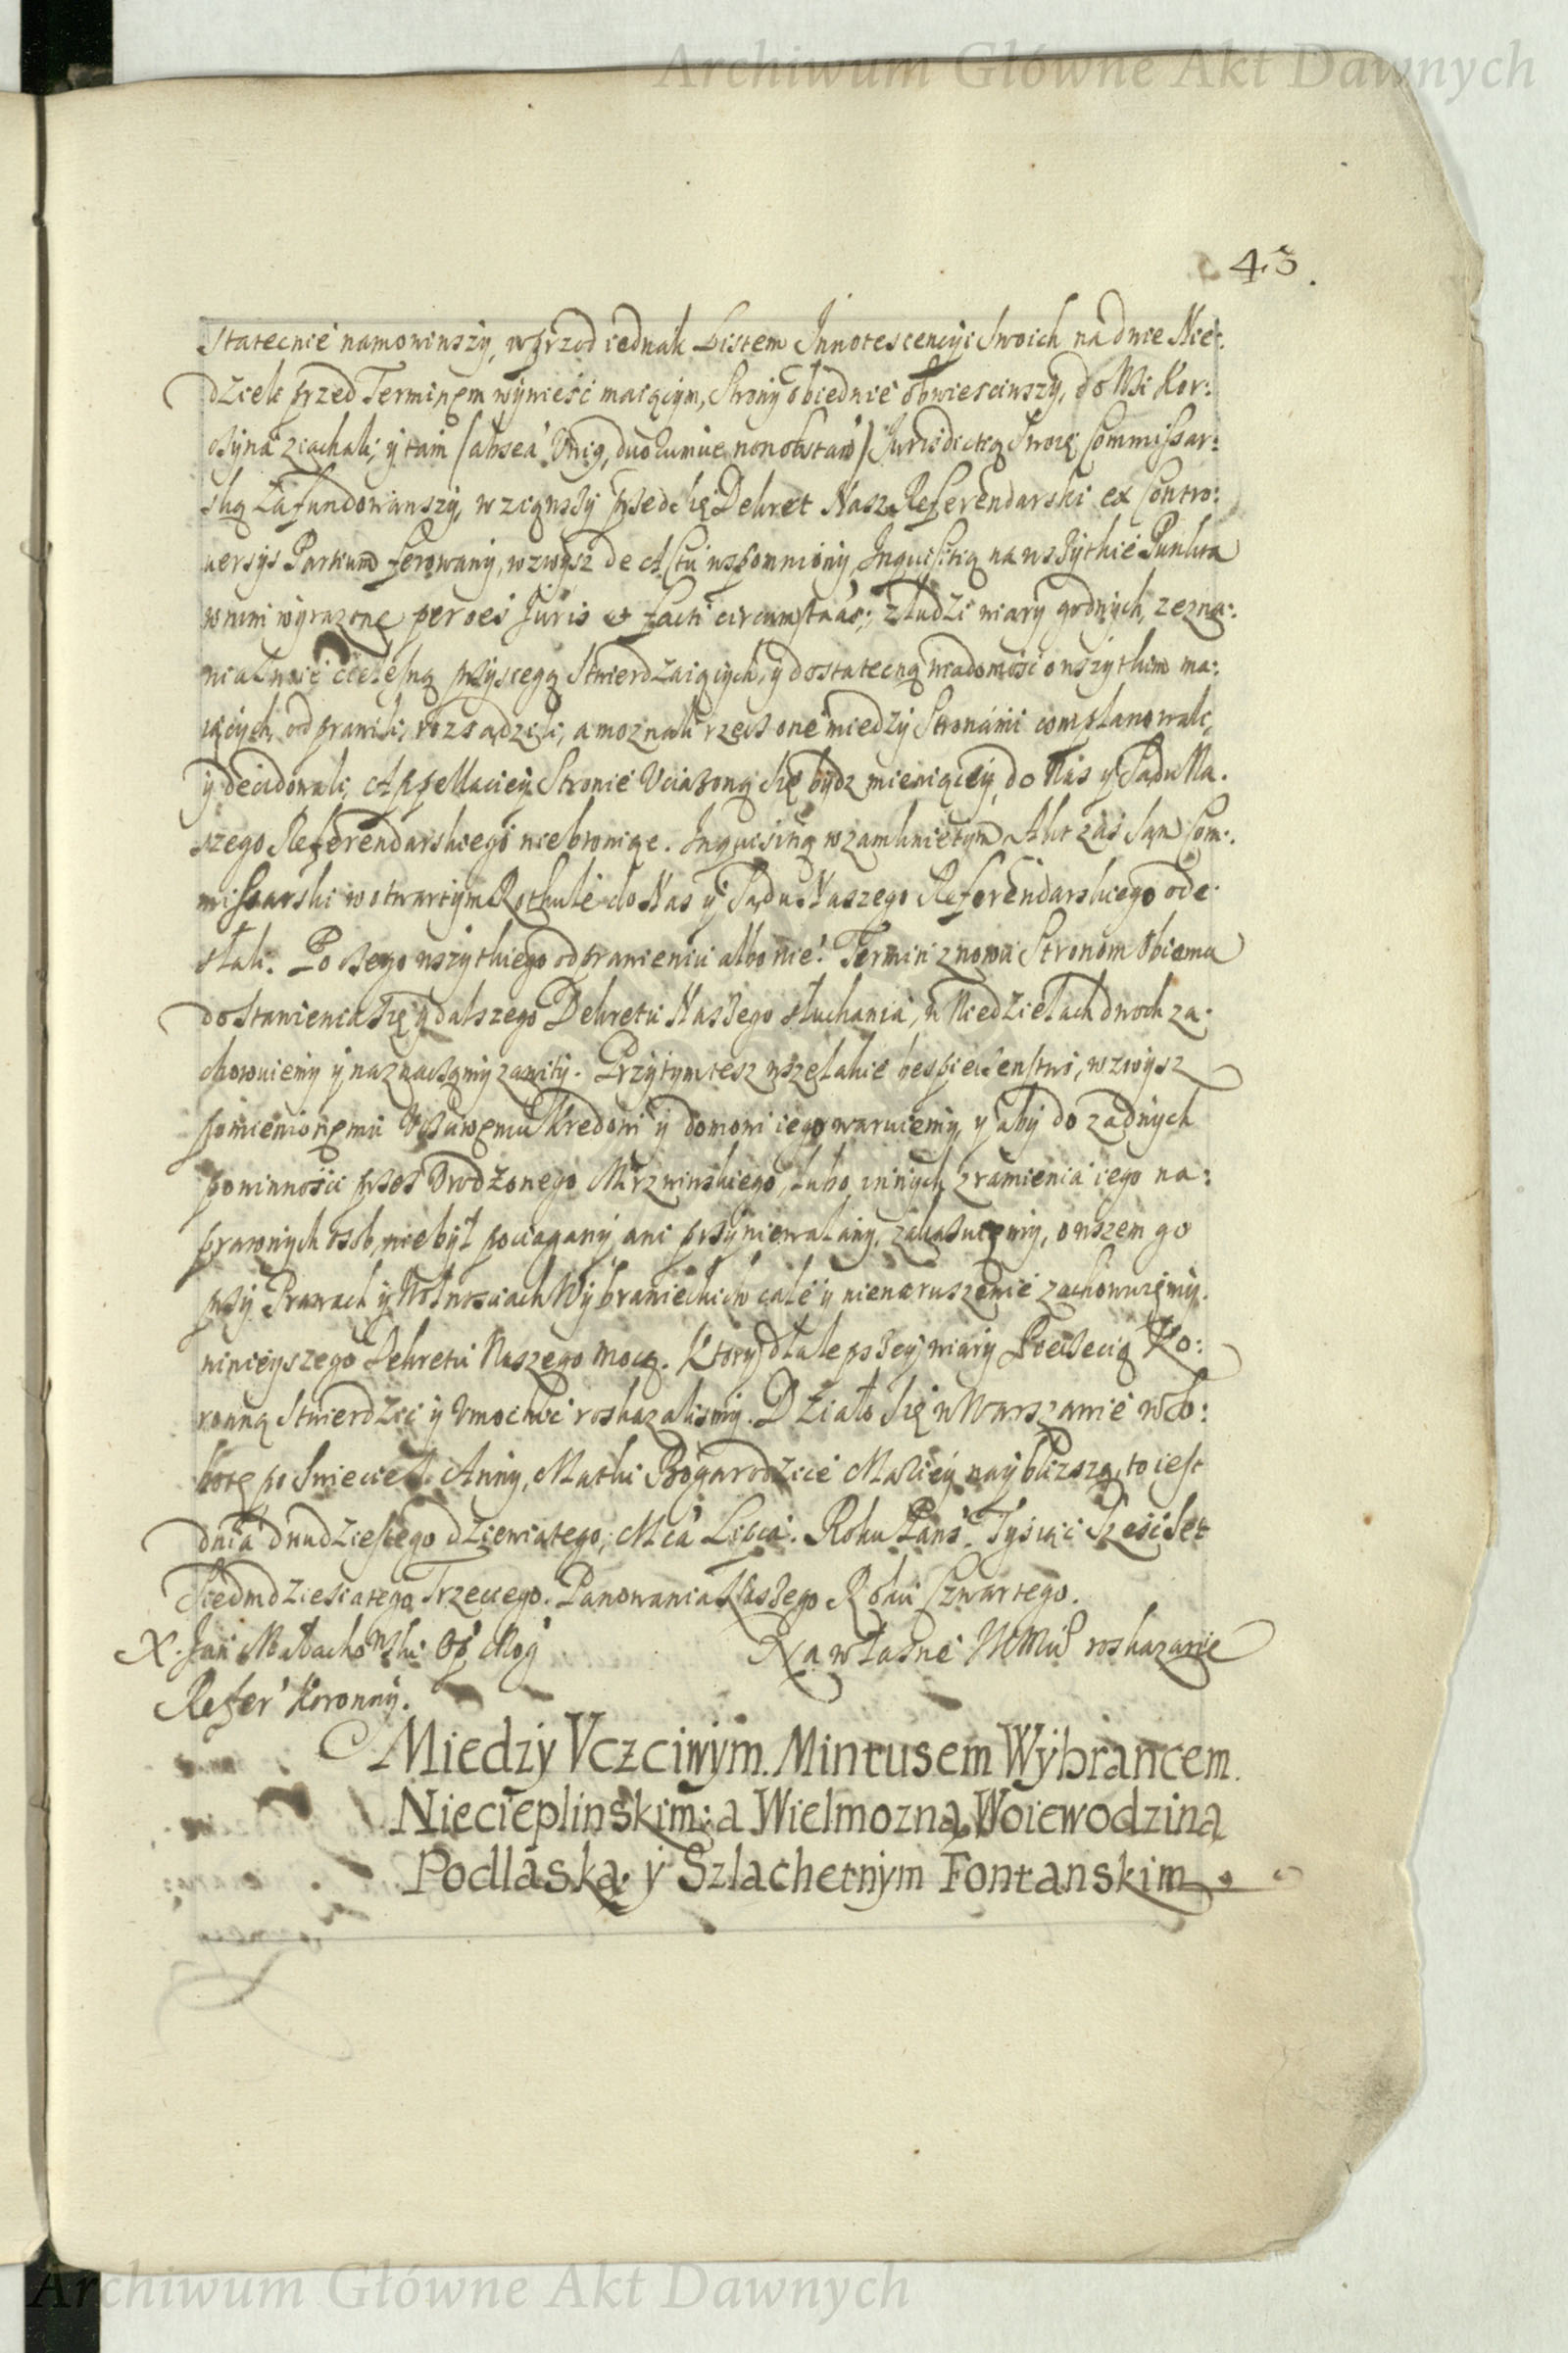 Archiwum Główne Akt Dawnych
43.
statecnie namowiwszy, wprzod iednak Listem Innotescencyi Swoich na dwie Nie:
dziele przed Terminem wynieść maiącym, Strony obiednie obwiesciwszy, do Wsi Kor:
czyna ziachali, y tam Iurisdictią Swoię Commissar:
ską zafundowawszy, wziąwszy przed się Dekret Nasz Referendarski ex Contro:
uersys Partium ferowany, wzwysz de Actu wspomniony, Inquisitią na wszytkie Punkta
w nim wyrazone per oes Juris et facti circumstaās; z ludzi wiary godnych, zezna:
nia swoie cielesną przysięgą stwierdzaiących, y dostatecną wiadomość o wszytkim ma:
iących, odprawili, rozsądzili, a moznali rzecz one miedzy Stronami complanowali,
y decidowali, Appellaciey Stronie Vciązoną się bydz mieniącey, do Nas y Sądu Na.
szego Referendarskiego niebroniąc. Inquisitią w zamknietym Akt zaś Sąu Com:
missarski w otwartym Rotkule do Nas y Sądu Naszego Referendarskiego ode:
słali. Po czego wszytkiego odprawieniu albo nie: Termin znowu Stronom Obiema
do stawienia się y dalszego Dekretu Naszego słuchania, w Niedzielach dwoch za:
chowuiemy y naznaczamy zawity. Przytym tesz wszelakie bespieczenstwo, wzwysz
pomienionemu Vczciwemu Kredowi y domowi iego waruiemy, y aby do zadnych
powinności przez Vrodzonego Mirzwinskiego, lubo innych z ramienia iego na:
prawnych osob, nie był pociągany, ani przyniewalany, zakazuiemy, owszem go
przy Prawach y Wolnosciach Wybranieckich w cale y nienaruszenie zachowuiemy.
ninieyszego Dekretu Naszego mocą. Ktory dla lepszey wiary Pieczecią Ko:
ronną Stwierdzić y Vmocnić roskazalismy. Działo się w Warszawie w So:
botę po Swiecie S. Anny, Matki Bogarodzice Maryey naybliższą, to iest
dnia dwudziestego dziewiątego, Mca Lipca. Roku Pans: Tysiąc Szescset
Siedmdziesiątego Trzeciego. Panowania Naszego Roku Czwartego.
X. Jan Małachowski Op. Mog
Na własne JKMści roskazanie
Refer: Koronny.
Miedzy Vczciwym Mintusem Wybrancem
Niecieplinskim: a Wielmozną Woiewodziną
Podlaską y Szlachetnym Fontanskim
Archiwum Główne Akt Dawnych